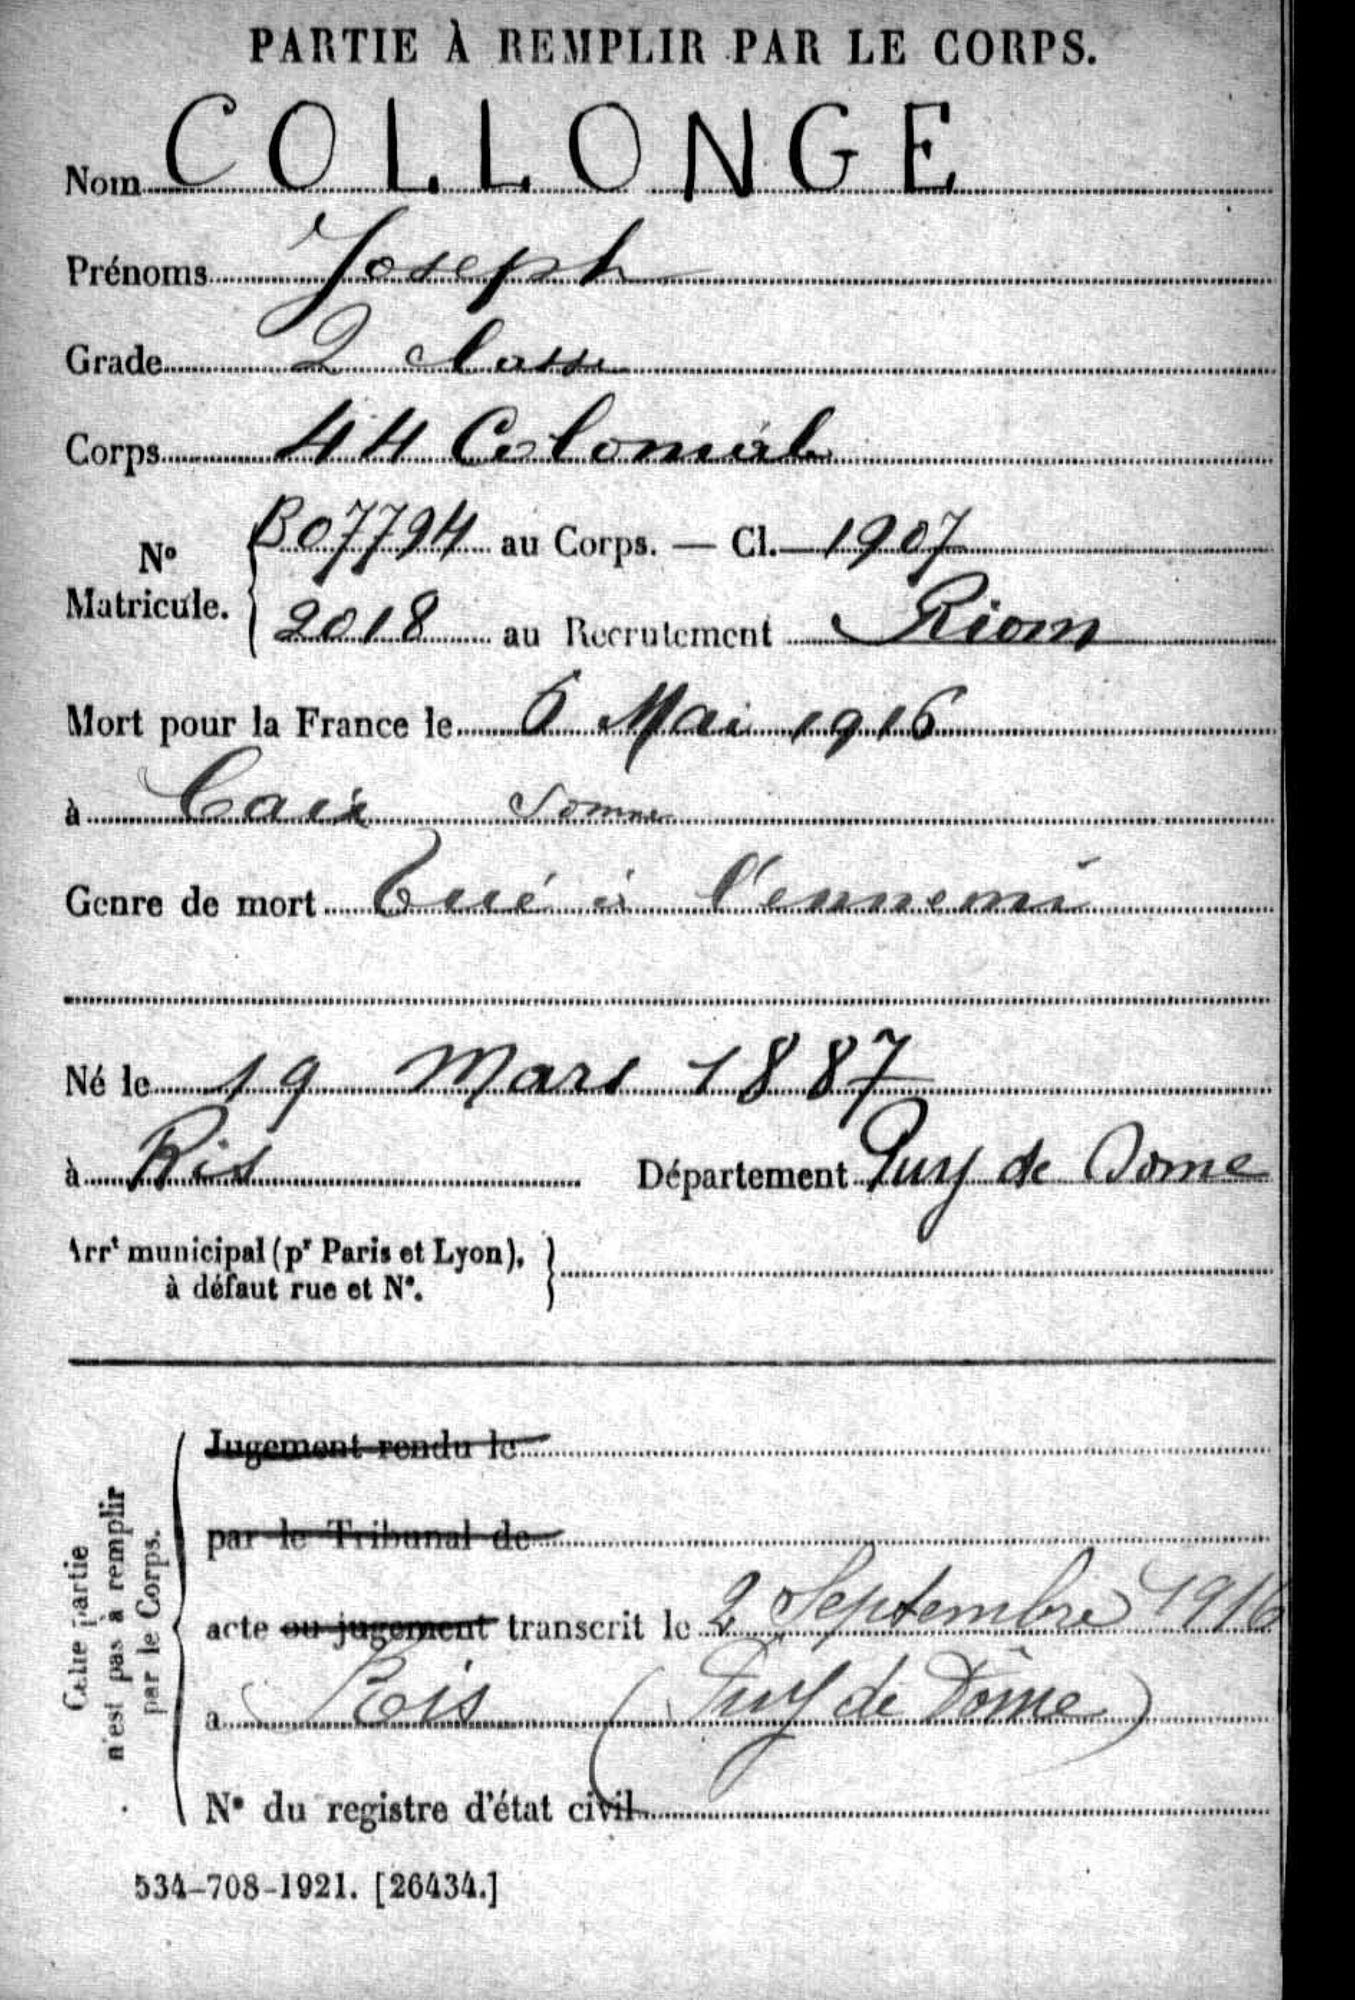 PARTIE À REMPLIR PAR LE CORPS.
Nom COLLONGE
Prénoms Joseph
Grade 2 classe
Corps 44 Colonial
N° Matricule. B07794 au Corps. — Cl. 1907
2018 au Recrutement Riom
Mort pour la France le 6 Mai 1916
à Caix Somme
Genre de mort Tué à l'ennemi
Né le 19 Mars 1887
à Ris Département Puy de Dome
Arrt municipal (pr Paris et Lyon), à défaut rue et N°.
Cette partie n'est pas à remplir par le Corps.
Jugement rendu le
par le Tribunal de
acte ou jugement transcrit le 2 Septembre 1916
a Ris (Puy de Dôme)
N° du registre d'état civil
534-708-1921. [26434.]